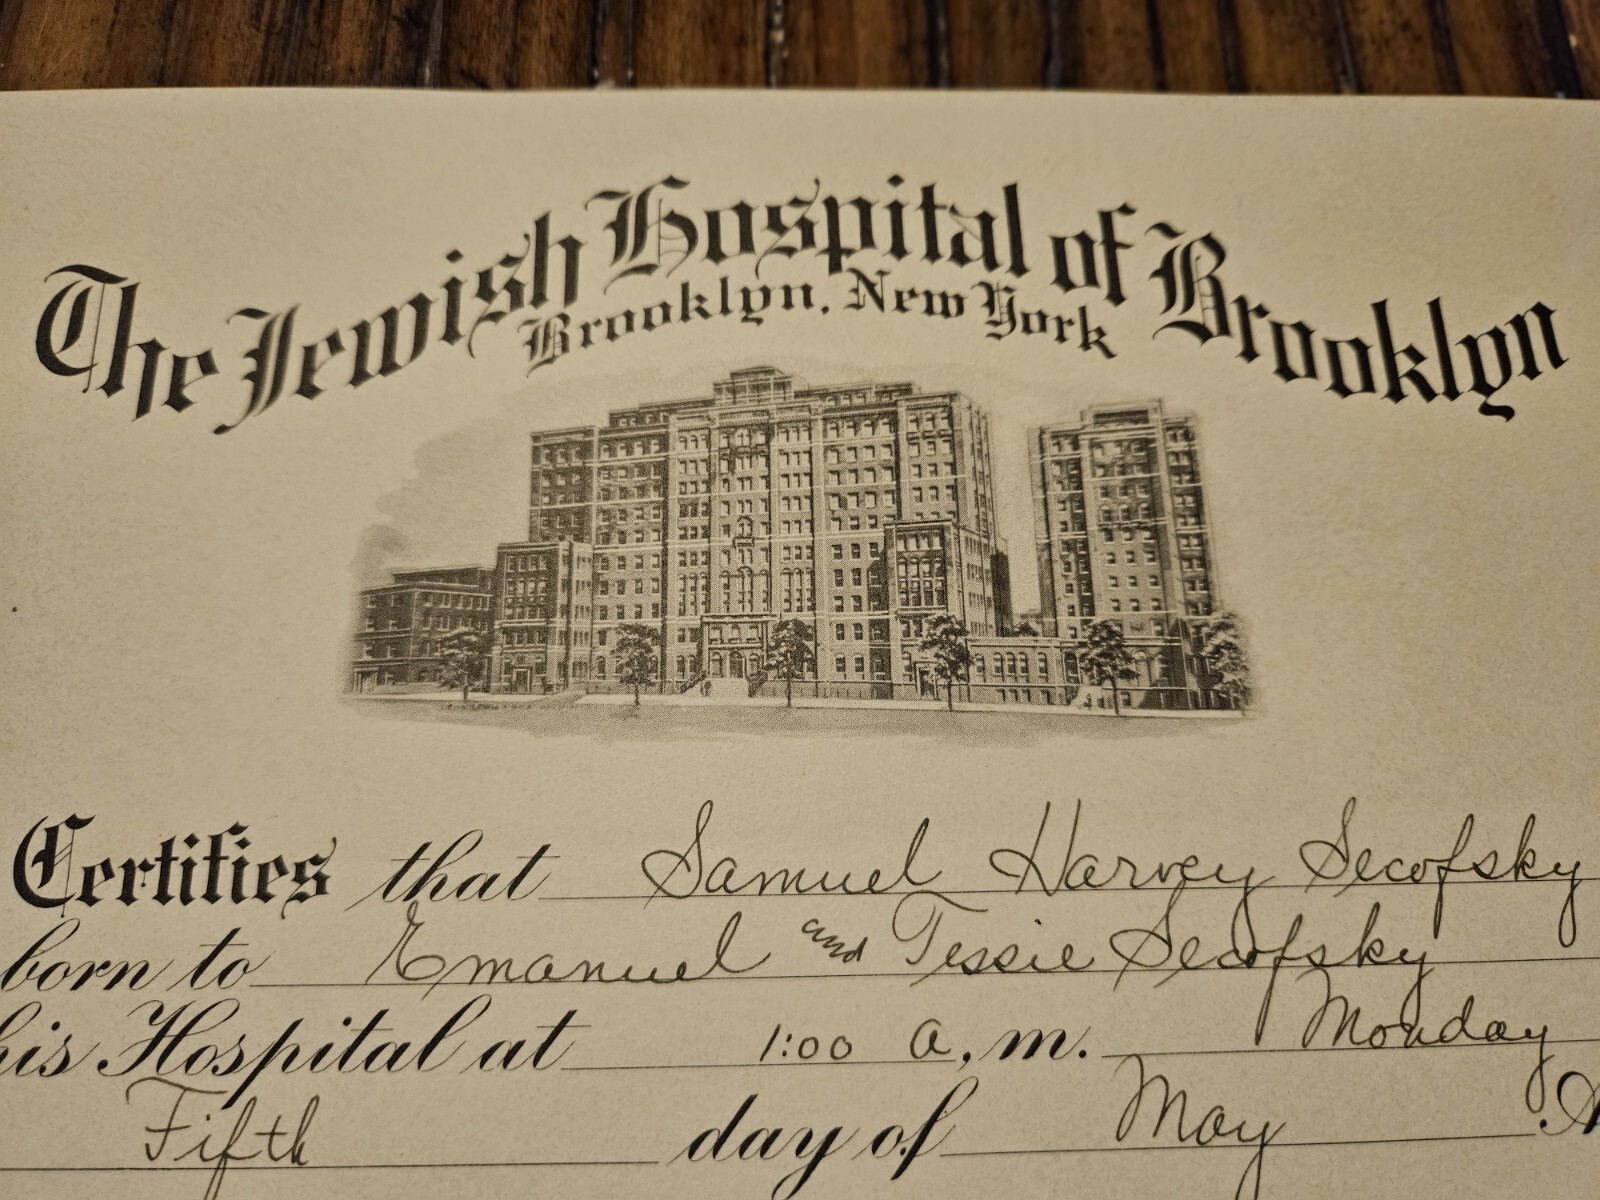 The Jewish Hospital of Brooklyn
Brooklyn, New York
Certifies that Samuel Harvey Secofsky
born to Emanuel and Tessie Secofsky
his Hospital at 1:00 a.m. Monday
Fifth day of May A